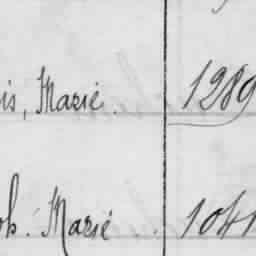 is, Marie. 1289
ob. Marie . . 1041